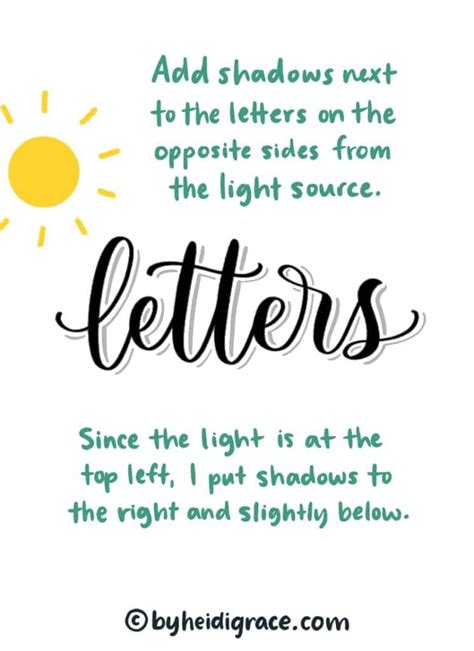 Add shadows next
to the letters on the
opposite sides from
the light source.
letters
Since the light is at the
top left, I put shadows to
the right and slightly below.
©byheidigrace.com